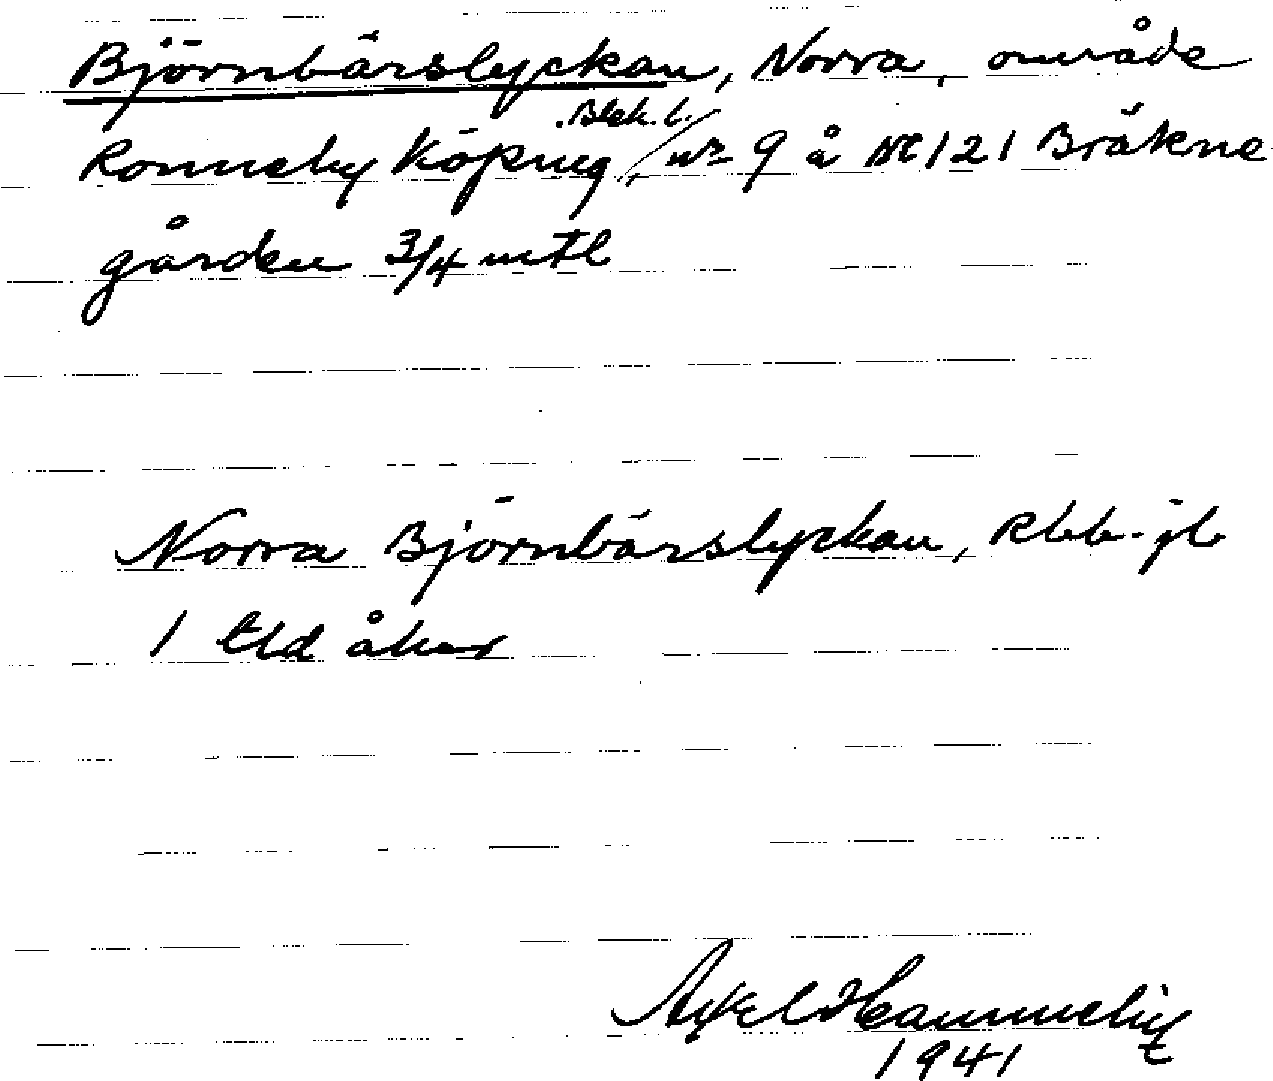 Björnbärslyckan, Norra, område
Blek. l.
Ronneby Köping, nr 9 å NE 121 Bräkne
gården 3/4 mtl
Norra Björnbärslyckan, Rbb-jb
1 tld åker
1941